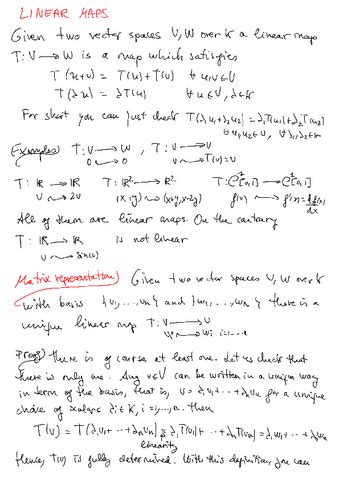 LINEAR MAPS
Given two vector spaces V, W over K a linear map
T: V → W is a map which satisfies
T(u+v) = T(u)+T(v) ∀ u,v∈V
T(λu) = λT(u) ∀ u∈V, λ∈K
For short you can just check T(λ₁u₁+λ₂u₂) = λ₁T(u₁)+λ₂T(u₂)
∀ u₁,u₂∈V, ∀ λ₁,λ₂∈K
Examples) T: V → W , T: V → V
0 → 0 v → T(v)=v
T: R → R T: R² → R² T: C[0,1] → C[0,1]
v → 2v (x,y) → (x+y, x-2y) f(x) → f'(x) = df(x)/dx
All of them are linear maps. On the contrary
T: R → R is not linear
v → sin(v)
Matrix representation) Given two vector spaces V, W over K
with basis {v₁,...,vn} and {w₁,...,wn} there is a
unique linear map T: V → V
vi → wi i=1...n
Proof) There is of course at least one. Let us check that
there is only one. Any v∈V can be written in a unique way
in term of the basis, that is, v = λ₁v₁+···+λnvn for a unique
choice of scalars λi∈K, i=1,...,n. Then
T(v) = T(λ₁v₁+···+λnvn) = λ₁T(v₁)+···+λnT(vn) = λ₁w₁+···+λnwn
linearity
Hence, T(v) is fully determined. With this definition, you can